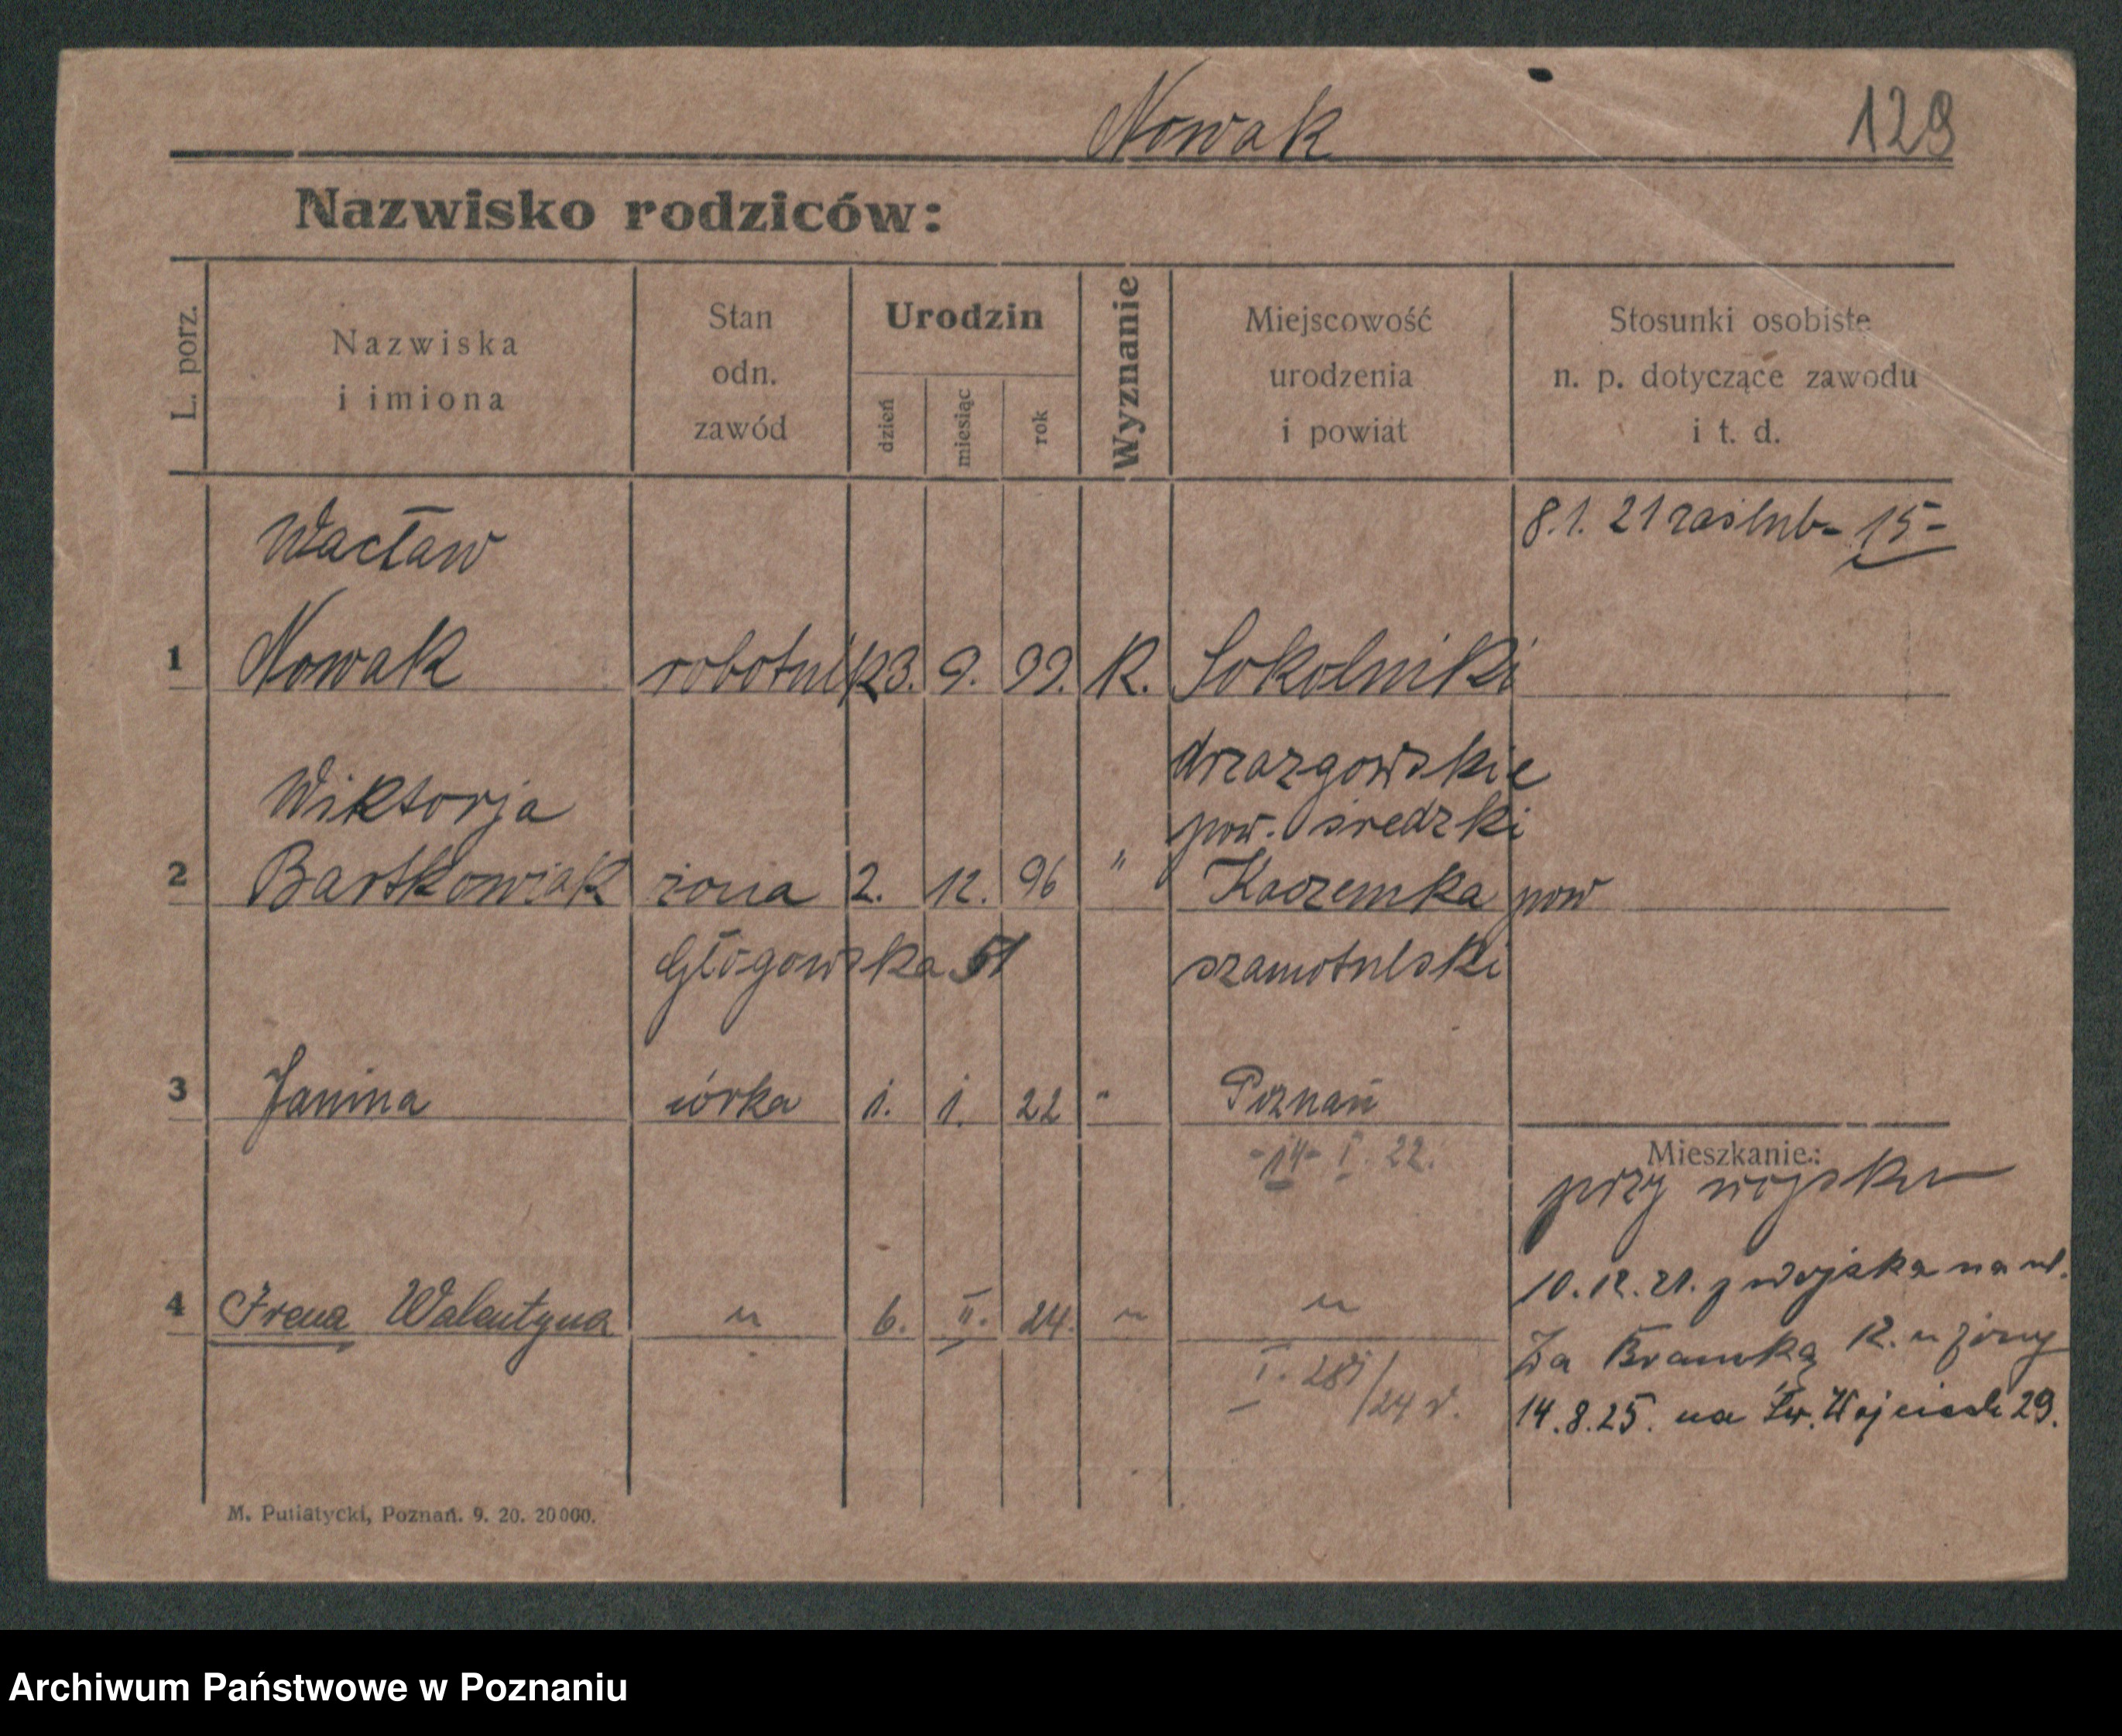 Nowak 129
Nazwisko rodziców:
L. porz.
Nazwiska
i imiona
Stan
odn.
zawód
Urodzin
dzień
miesiąc
rok
Wyznanie
Miejscowość
urodzenia
i powiat
Stosunki osobiste
n. p. dotyczące zawodu
i t. d.
Wacław 8.1. 21 zaślub- 15-
1 Nowak robotnik 23. 9. 99. K. Sokolniki
drzazgowskie
Wiktorja pow. średzki
2 Bartkowiak żona 2. 12. 96 " pow
Głogowska 51 szamotulski
3 Janina córka 1. 1. 22 " Poznań
-14- I. 22.
Mieszkanie:
przy wojsku
10.12.21. z wojska na ul.
4 Irena Walentyna " 6. II. 24. " "
Za Bramką 12. u żony
I. 281/24 r.
14.8.25. na Św. Wojciech 29.
M. Putiatycki, Poznań. 9. 20. 20000.
Archiwum Państwowe w Poznaniu